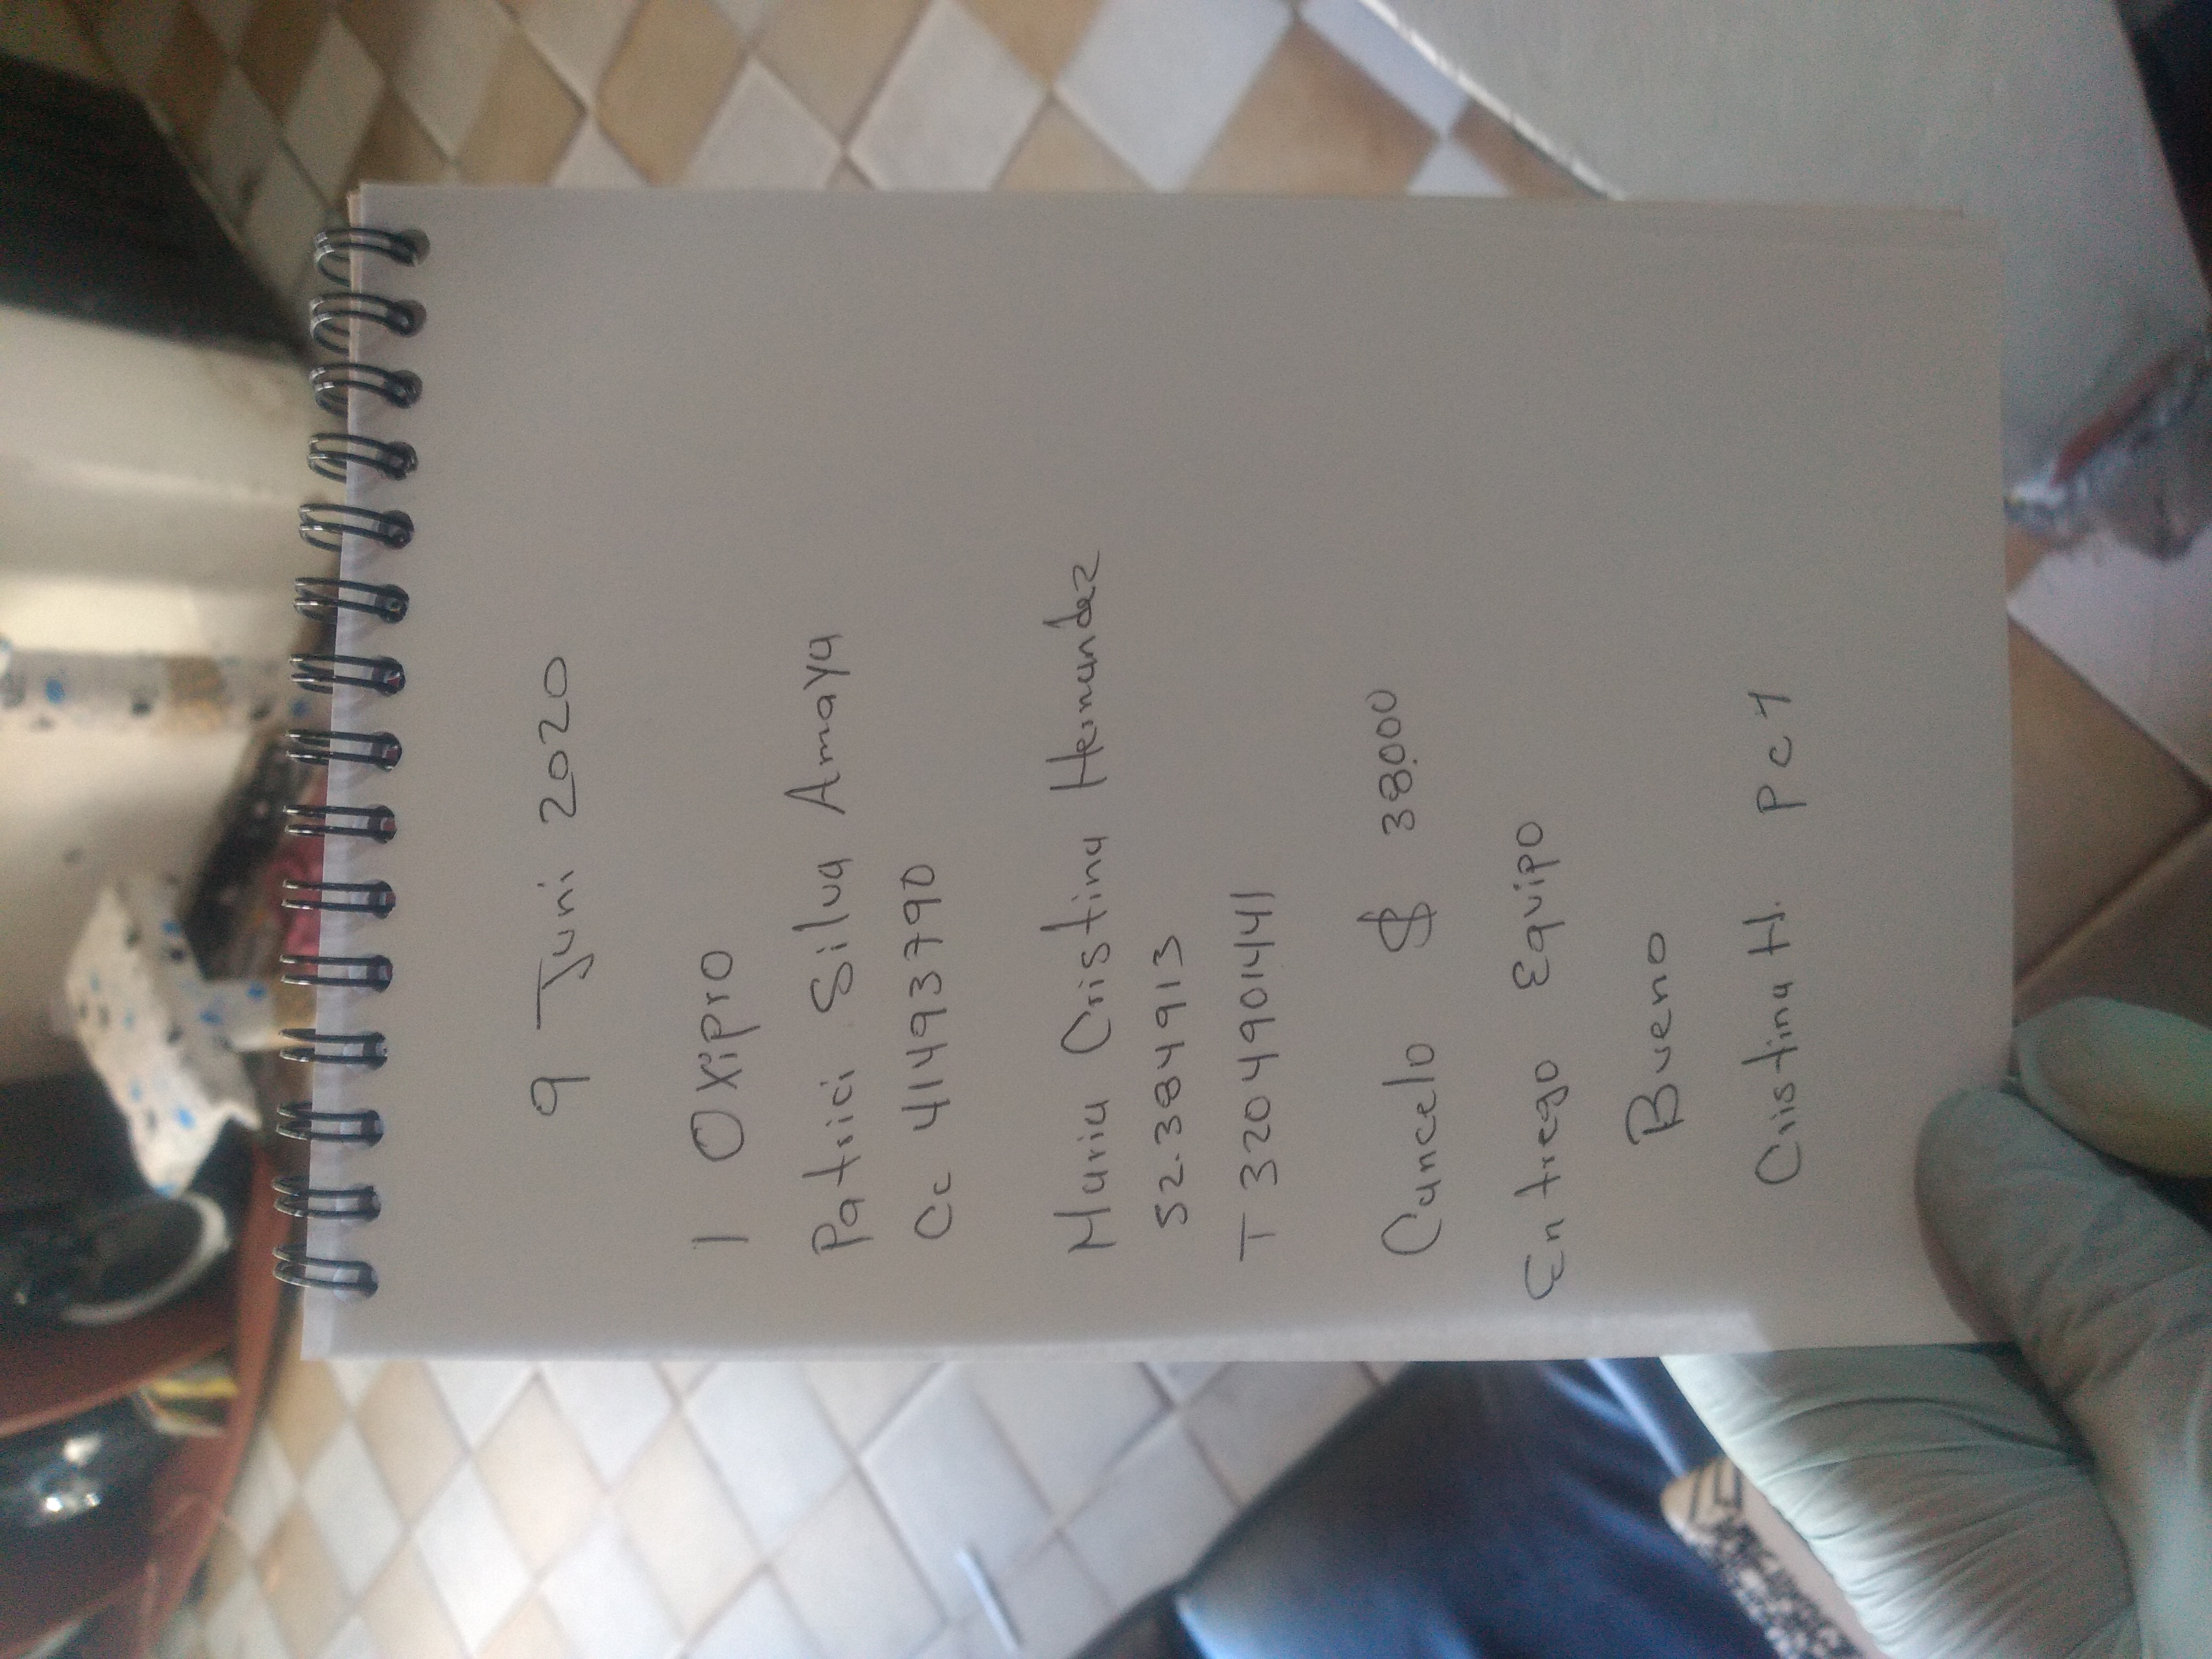 9 Juni 2020
1 Oxipro
Patrici Silva Amaya
Cc 41493790
Maria Cristina Hernandez
52.384913
T 3204901441
Cancelo $ 38.000
Entrego Equipo
Bueno
Cristina H. Pc1